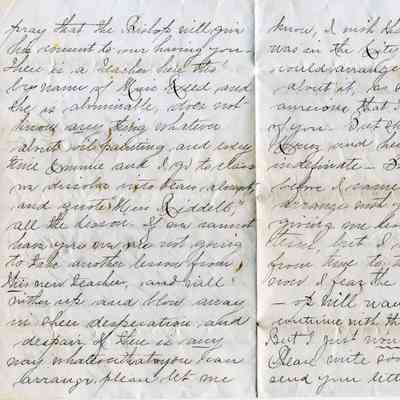 pray that the Bishop will give
his consent to our having you.
There is a teacher here the
by name of Miss Reed and
she is abominable, does not
know any thing whatever
about oil painting, and every
time Emmie and I go to class
we dissolve into tears almost,
and quote "Miss Riddell,"
all the lesson. If we cannot
have you we are not going
to take another lesson from
this new teacher, and will
wither up and blow away
in sheer desperation, and
despair. If there is any
way whatsoever that you can
arrange please let me
know, I wish tha
was in the City
could arrange
about it, as I
anxious that I
of you. But th
and he
indefinite —
before I name
arrange with y
giving me
there, but I
from time to t
now I fear the
— I will wa
continue with th
But I just wou
Please write soo
send your lett